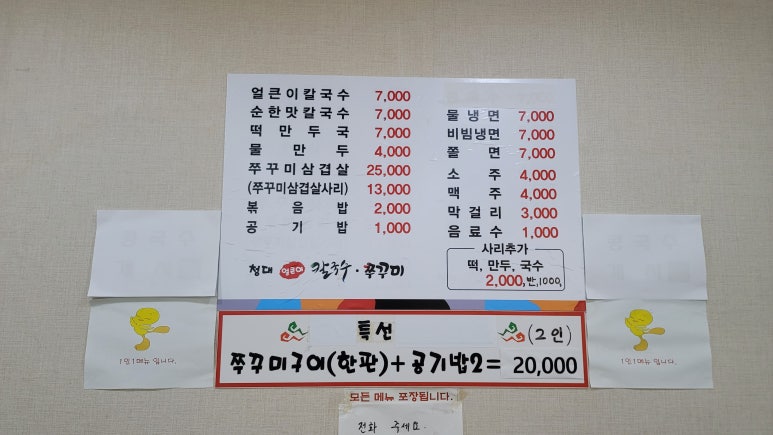 얼큰이칼국수 7,000
순한맛칼국수 7,000
떡만두국 7,000
물만두 4,000
쭈꾸미삼겹살 25,000
(쭈꾸미삼겹살사리) 13,000
볶음밥 2,000
공기밥 1,000
물냉면 7,000
비빔냉면 7,000
쫄면 7,000
소주 4,000
맥주 4,000
막걸리 3,000
음료수 1,000
사리추가
떡, 만두, 국수
2,000, 반, 1000,
청대 얼큰이 칼국수·쭈꾸미
특선 (2인)
쭈꾸미구이(한판)+공기밥2= 20,000
1인1메뉴 입니다.
1인1메뉴 입니다.
모든 메뉴 포장됩니다.
전화 주세요.